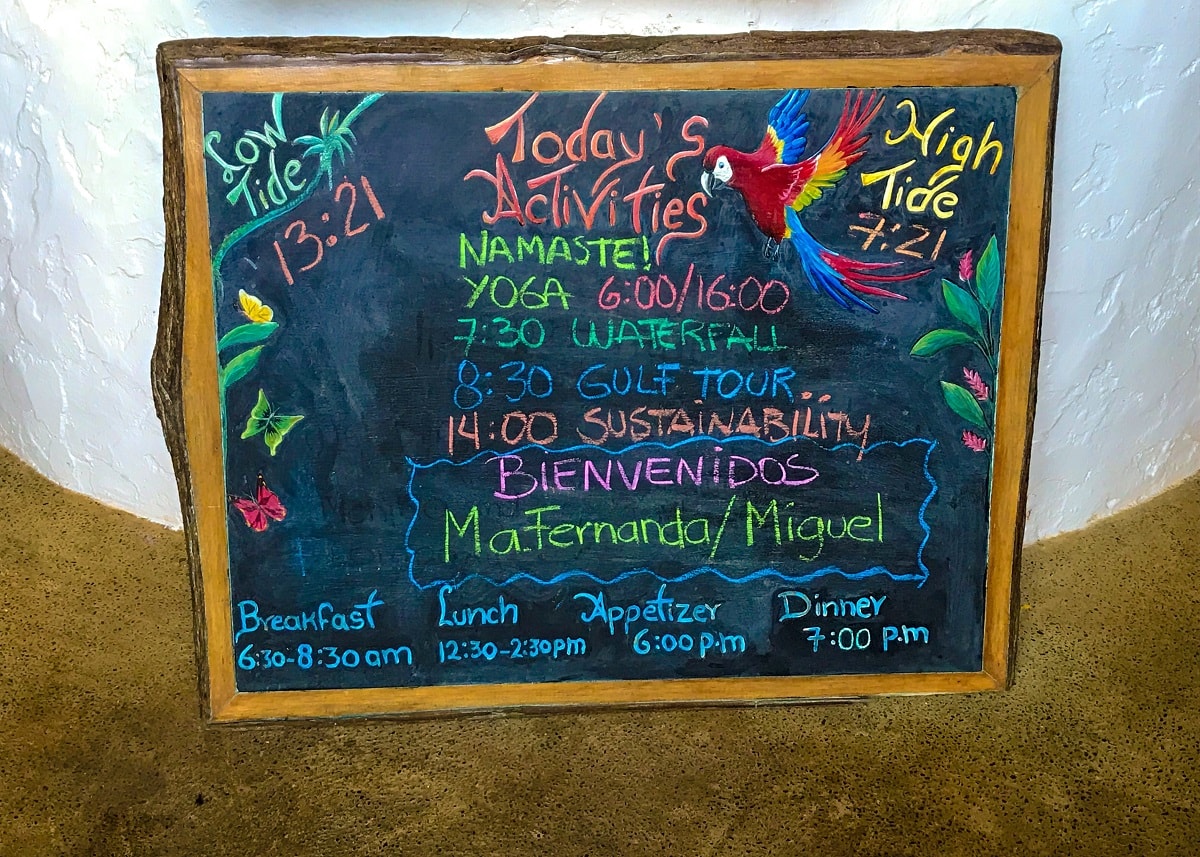 Low
Tide
13:21
Today's
Activities
High
Tide
7:21
NAMASTE!
YOGA 6:00/16:00
7:30 WATERFALL
8:30 GULF TOUR
14:00 SUSTAINABILITY
BIENVENIDOS
Ma.Fernanda/Miguel
Breakfast
6:30-8:30am
Lunch
12:30-2:30pm
Appetizer
6:00 p.m
Dinner
7:00 p.m